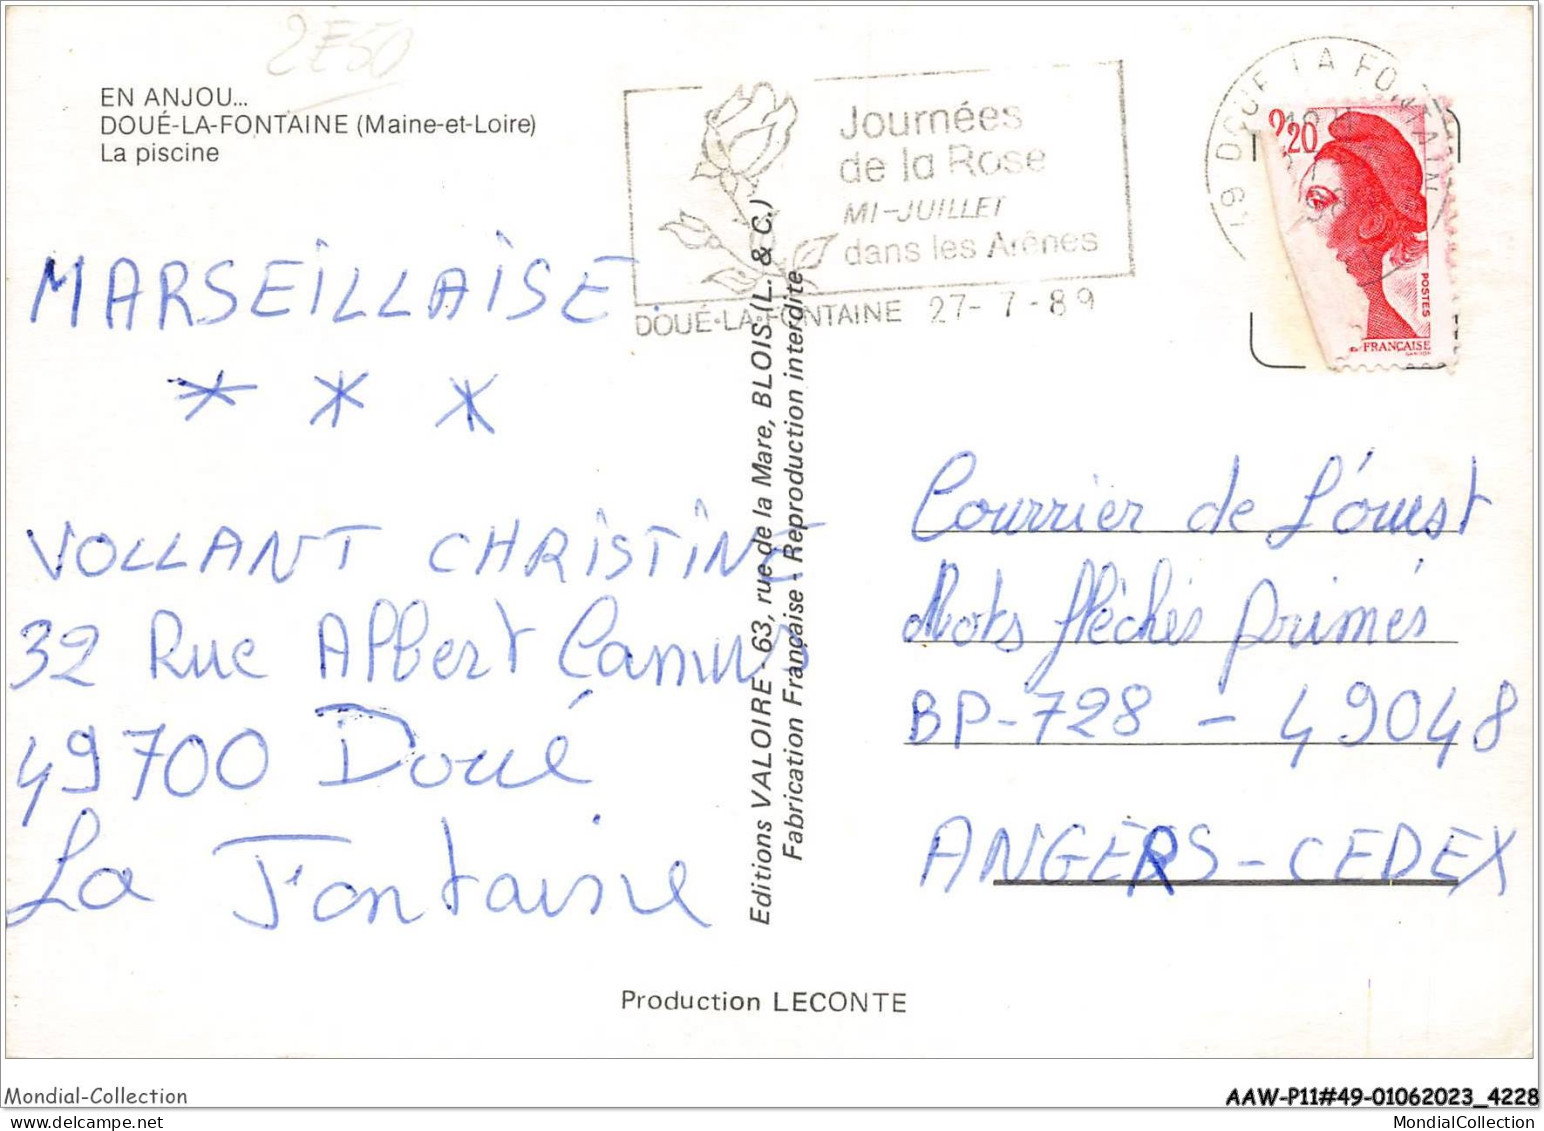 2E50
EN ANJOU...
DOUÉ-LA-FONTAINE (Maine-et-Loire)
La piscine
Journées
de la Rose
MI-JUILLET
dans les Arènes
DOUÉ-LA-FONTAINE 27-7-89
49 DOUE LA FONTAINE
2,20
POSTES
FRANÇAISE
MARSEILLAISE
* * *
VOLLANT CHRISTINE
32 Rue Albert Camus
49700 Doué
La Fontaine
Editions VALOIRE - 63, rue de la Mare, BLOIS (L. & C.)
Fabrication Française - Reproduction interdite
Courrier de L'ouest
Mots fléchés primés
BP-728 - 49048
ANGERS-CEDEX
Production LECONTE
Mondial-Collection
AAW-P11#49-01062023_4228
MondialCollection